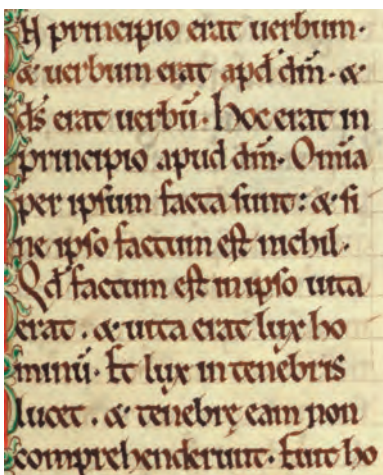 N principio erat uerbum·
& uerbum erat apđ dm̄· &
ds̄ erat uerbū· Hoc erat in
principio apud dm̄· Om̄ia
per ipsum facta sunt: & si
ne ipso factum est nichil·
Qđ factum est in ipso uita
erat· & uita erat lux ho
minū· Et lux in tenebris
lucet· & tenebrę eam non
comprehenderunt· Fuit ho